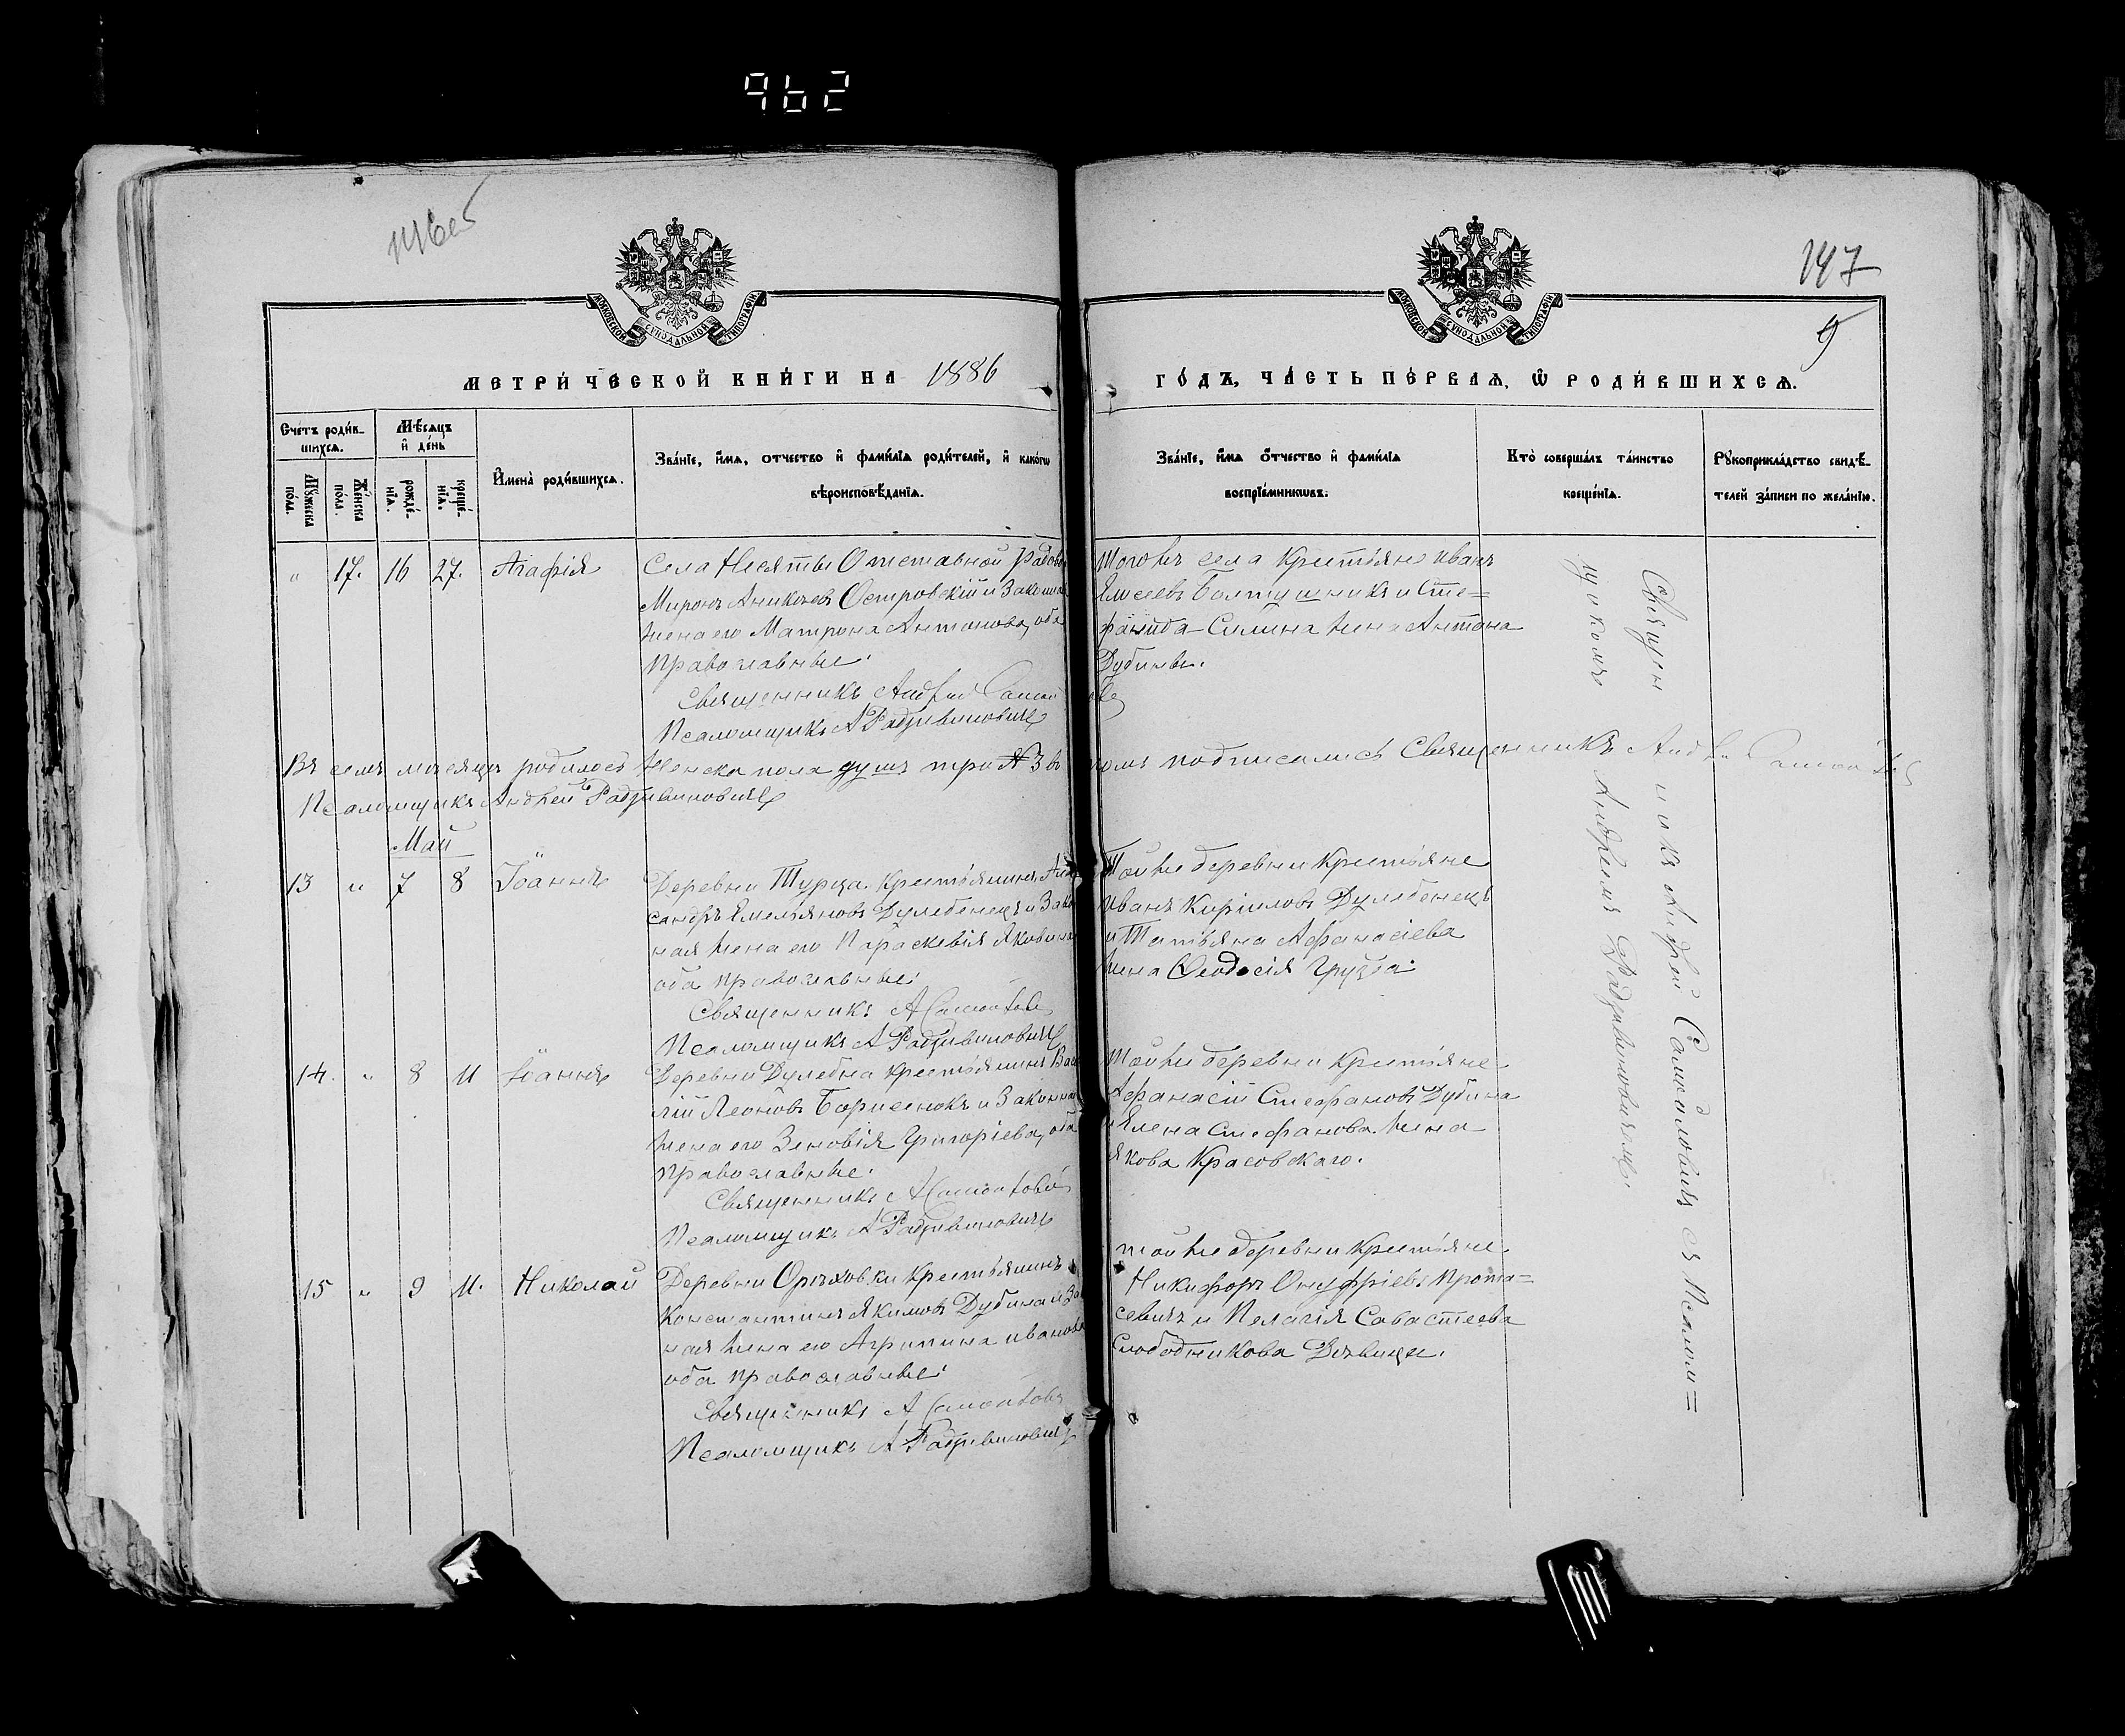 962
146об
147
9
МОСКОВСКОЙ СѴНОДАЛЬНОЙ ТИПОГРАФІИ
МОСКОВСКОЙ СѴНОДАЛЬНОЙ ТИПОГРАФІИ
МЕТРИ́ЧЕСКОЙ КНИ́ГИ НА 1886
ГО́ДЪ, ЧА́СТЬ ПЕ́РВАѦ, Ѿ РОДИ́ВШИХСѦ.
Счетъ роди́в-
шихсѧ.
Мѣ́сѧцъ
и҆ де́нь
Мꙋ́жеска
по́ла.
Же́нска
по́ла.
рожде́-
нїѧ.
креще́-
нїѧ.
И҆мена̀ роди́вшихсѧ.
Зва́нїе, и҆́мѧ, о҆́тчество и҆ фами́лїѧ роди́телей, и҆ како́гѡ
вѣроисповѣ́данїѧ.
Зва́нїе, и҆́мѧ о҆́тчество и҆ фами́лїѧ
воспрїе́мникѡвъ.
Кто̀ соверша́лъ та́инство
креще́нїѧ.
Рꙋкоприкла́дство свидѣ́-
телей за́писи по жела́нїю.
" 17. 16 27. Агафія
Села Несяты Отставной Рядово
Миронъ Аникіевъ Островскій и Закон
жена его Матрона Антонова, оба
православные.
Священникъ Андрей
Псаломщикъ А Радзивиновичъ
Тогожъ села Крестьяне Иванъ
Елисеевъ Болтушникъ и Сте=
фанида Силина жена Антона
Дубины.
Въ семъ месяцѣ родилось женска пола душъ три № 3 въ томъ подписались Священникъ
Псаломщикъ Андрей Радзивиновичъ
Май
13 " 7 8 Іоаннъ
Деревни Турца Крестьянинъ Алек
сандръ Емельяновъ Дулебенецъ и Зако
ная жена его Параскевія Яковлева
оба православные.
Священникъ А
Псаломщикъ А Радзивиновичъ
Тойже деревни Крестьяне
Иванъ Кириловъ Дулебенецъ
и Татьяна Афанасіева
жена Ѳеодосія Грузда.
14. " 8 11 Іоаннъ
Деревни Дулебна крестьянинъ Васи
лій Леоновъ Борисенокъ и Законная
жена его Зиновія Григоріева, оба
православные.
Священникъ А
Псаломщикъ А Радзивиновичъ
Тойже деревни Крестьяне
Афанасій Стефановъ Дубина
и Елена Стефанова жена
Якова Красовскаго.
15 " 9 11. Николай
Деревни Орѣховки Крестьянинъ
Константинъ Якимовъ Дубина и За
ная жена его Агрипина Иванова
оба православные.
Священникъ А
Псаломщикъ А Радзивиновичъ
тойже деревни Крестьяне
Никифоръ Онуфріевъ Прота=
севичъ и Пелагія Савастеева
Слободникова Дѣвица.
Священникъ Андрей съ Псалом=
щикомъ Андреемъ Радзивиновичемъ.